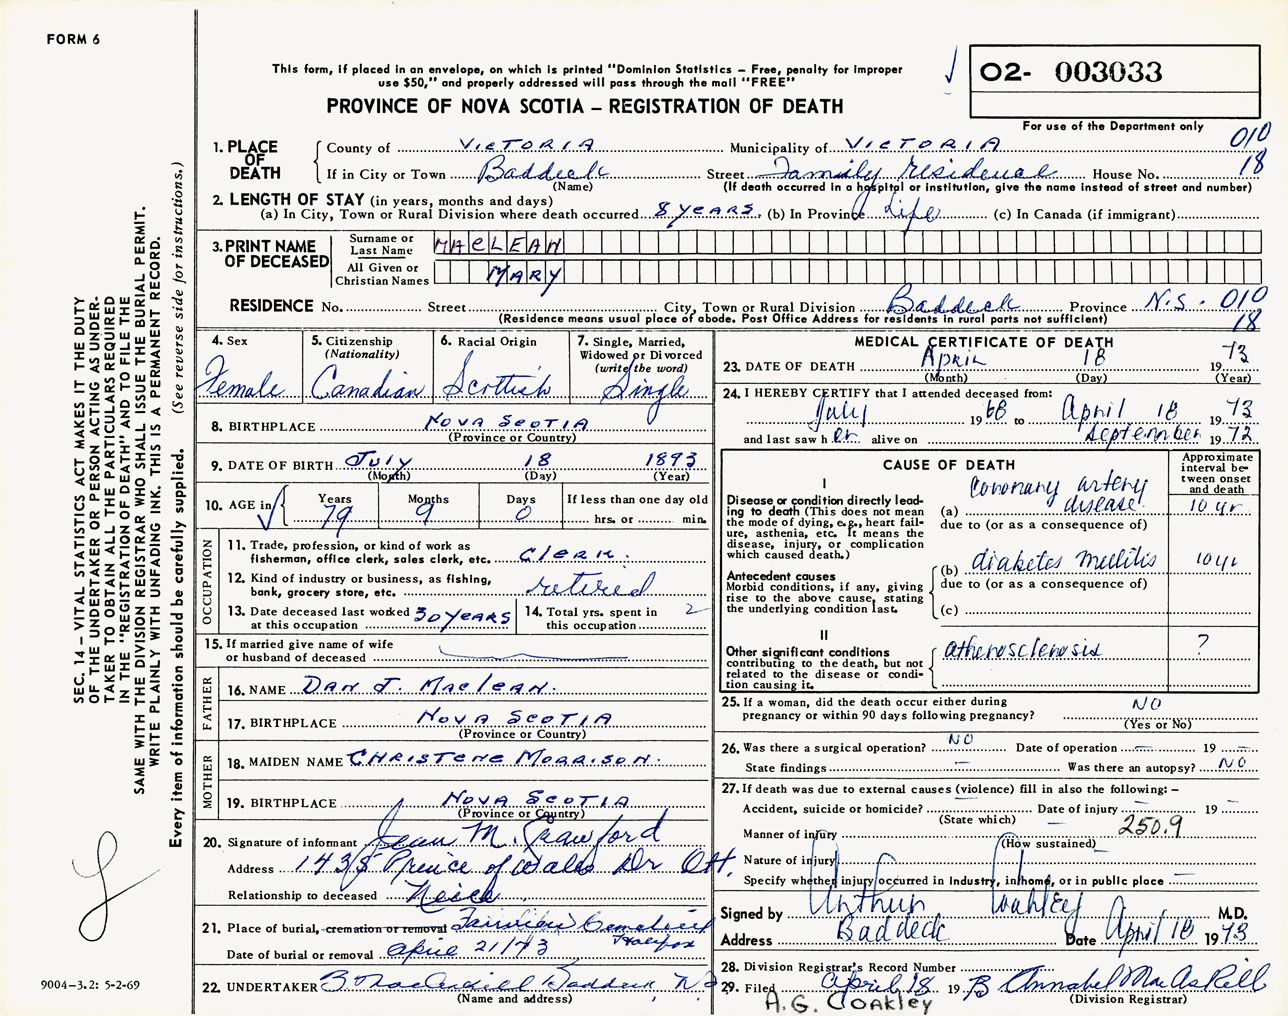 FORM 6
This form, if placed in an envelope, on which is printed "Dominion Statistics – Free, penalty for improper
use $50," and properly addressed will pass through the mail "FREE"
PROVINCE OF NOVA SCOTIA – REGISTRATION OF DEATH
02- 003033
For use of the Department only
010
18
1. PLACE OF DEATH
County of VICTORIA Municipality of VICTORIA
If in City or Town Baddeck Street Family residence House No.
(Name) (If death occurred in a hospital or institution, give the name instead of street and number)
2. LENGTH OF STAY (in years, months and days)
(a) In City, Town or Rural Division where death occurred 8 years, (b) In Province Life (c) In Canada (if immigrant)
3. PRINT NAME OF DECEASED
Surname or Last Name MACLEAN
All Given or Christian Names MARY
RESIDENCE No. Street City, Town or Rural Division Baddeck Province N.S. 010
(Residence means usual place of abode. Post Office Address for residents in rural parts not sufficient)
18
4. Sex
Female
5. Citizenship
(Nationality)
Canadian
6. Racial Origin
Scottish
7. Single, Married,
Widowed or Divorced
(write the word)
Single
8. BIRTHPLACE NOVA SCOTIA
(Province or Country)
9. DATE OF BIRTH July 18 1893
(Month) (Day) (Year)
10. AGE in Years Months Days If less than one day old
79 9 0 hrs. or min.
OCCUPATION
11. Trade, profession, or kind of work as
fisherman, office clerk, sales clerk, etc. Clerk.
12. Kind of industry or business, as fishing,
bank, grocery store, etc. retired
13. Date deceased last worked
at this occupation 30 years
14. Total yrs. spent in
this occupation 2
15. If married give name of wife
or husband of deceased
FATHER
16. NAME Dan J. MacLean.
17. BIRTHPLACE Nova Scotia
(Province or Country)
MOTHER
18. MAIDEN NAME Christene Morrison.
19. BIRTHPLACE Nova Scotia
(Province or Country)
20. Signature of informant Jean M. Crawford
Address 1435 Prince of Wales Dr Ott.
Relationship to deceased Neice
21. Place of burial, cremation or removal Cemetery
Halifax
Date of burial or removal April 21/73
22. UNDERTAKER Baddeck, N.S.
(Name and address)
MEDICAL CERTIFICATE OF DEATH
23. DATE OF DEATH April 18 1973
(Month) (Day) (Year)
24. I HEREBY CERTIFY that I attended deceased from:
July 1968 to April 18 1973
and last saw her alive on September 1972
CAUSE OF DEATH
Approximate
interval be-
tween onset
and death
I
Disease or condition directly lead-
ing to death (This does not mean
the mode of dying, e.g., heart fail-
ure, asthenia, etc. It means the
disease, injury, or complication
which caused death.)
(a) Coronary artery disease 10 yr.
due to (or as a consequence of)
Antecedent causes
Morbid conditions, if any, giving
rise to the above cause, stating
the underlying condition last.
(b) diabetes mellitis 10 yr
due to (or as a consequence of)
(c)
II
Other significant conditions
contributing to the death, but not
related to the disease or condi-
tion causing it.
atherosclerosis ?
25. If a woman, did the death occur either during
pregnancy or within 90 days following pregnancy? NO
(Yes or No)
26. Was there a surgical operation? NO Date of operation – 19 –
State findings – Was there an autopsy? NO
27. If death was due to external causes (violence) fill in also the following: –
Accident, suicide or homicide? Date of injury – 19 –
(State which)
Manner of injury 250.9
(How sustained)
Nature of injury
Specify whether injury occurred in industry, in home, or in public place –
Signed by Arthur Coakley M.D.
Address Baddeck Date April 18 1973
28. Division Registrar's Record Number
29. Filed April 18 19 B Annabel MacAskill
(Division Registrar)
A.G. COAKLEY
SEC. 14 – VITAL STATISTICS ACT MAKES IT THE DUTY
OF THE UNDERTAKER OR PERSON ACTING AS UNDER-
TAKER TO OBTAIN ALL THE PARTICULARS REQUIRED
IN THE "REGISTRATION OF DEATH" AND TO FILE THE
SAME WITH THE DIVISION REGISTRAR WHO SHALL ISSUE THE BURIAL PERMIT.
WRITE PLAINLY WITH UNFADING INK. THIS IS A PERMANENT RECORD.
Every item of information should be carefully supplied. (See reverse side for instructions.)
9004-3.2: 5-2-69